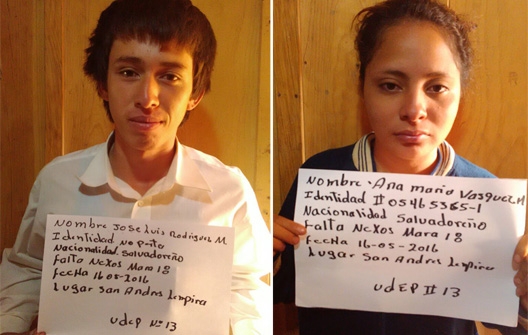 Nombre José Luis Rodriguez M.
Identidad No Porta
Nacionalidad Salvadoreño
Falta Nexos Mara 18
fecha 16-05-2016
Lugar San Andres Lempira
UdeP No 13
Nombre. Ana Maria Vasquez M
Identidad # 0546 5365-1
Nacionalidad Salvadoreño
Falta Nexos Mara 18
fecha 16-05-2016
Lugar San Andres Lempira
UdEP # 13